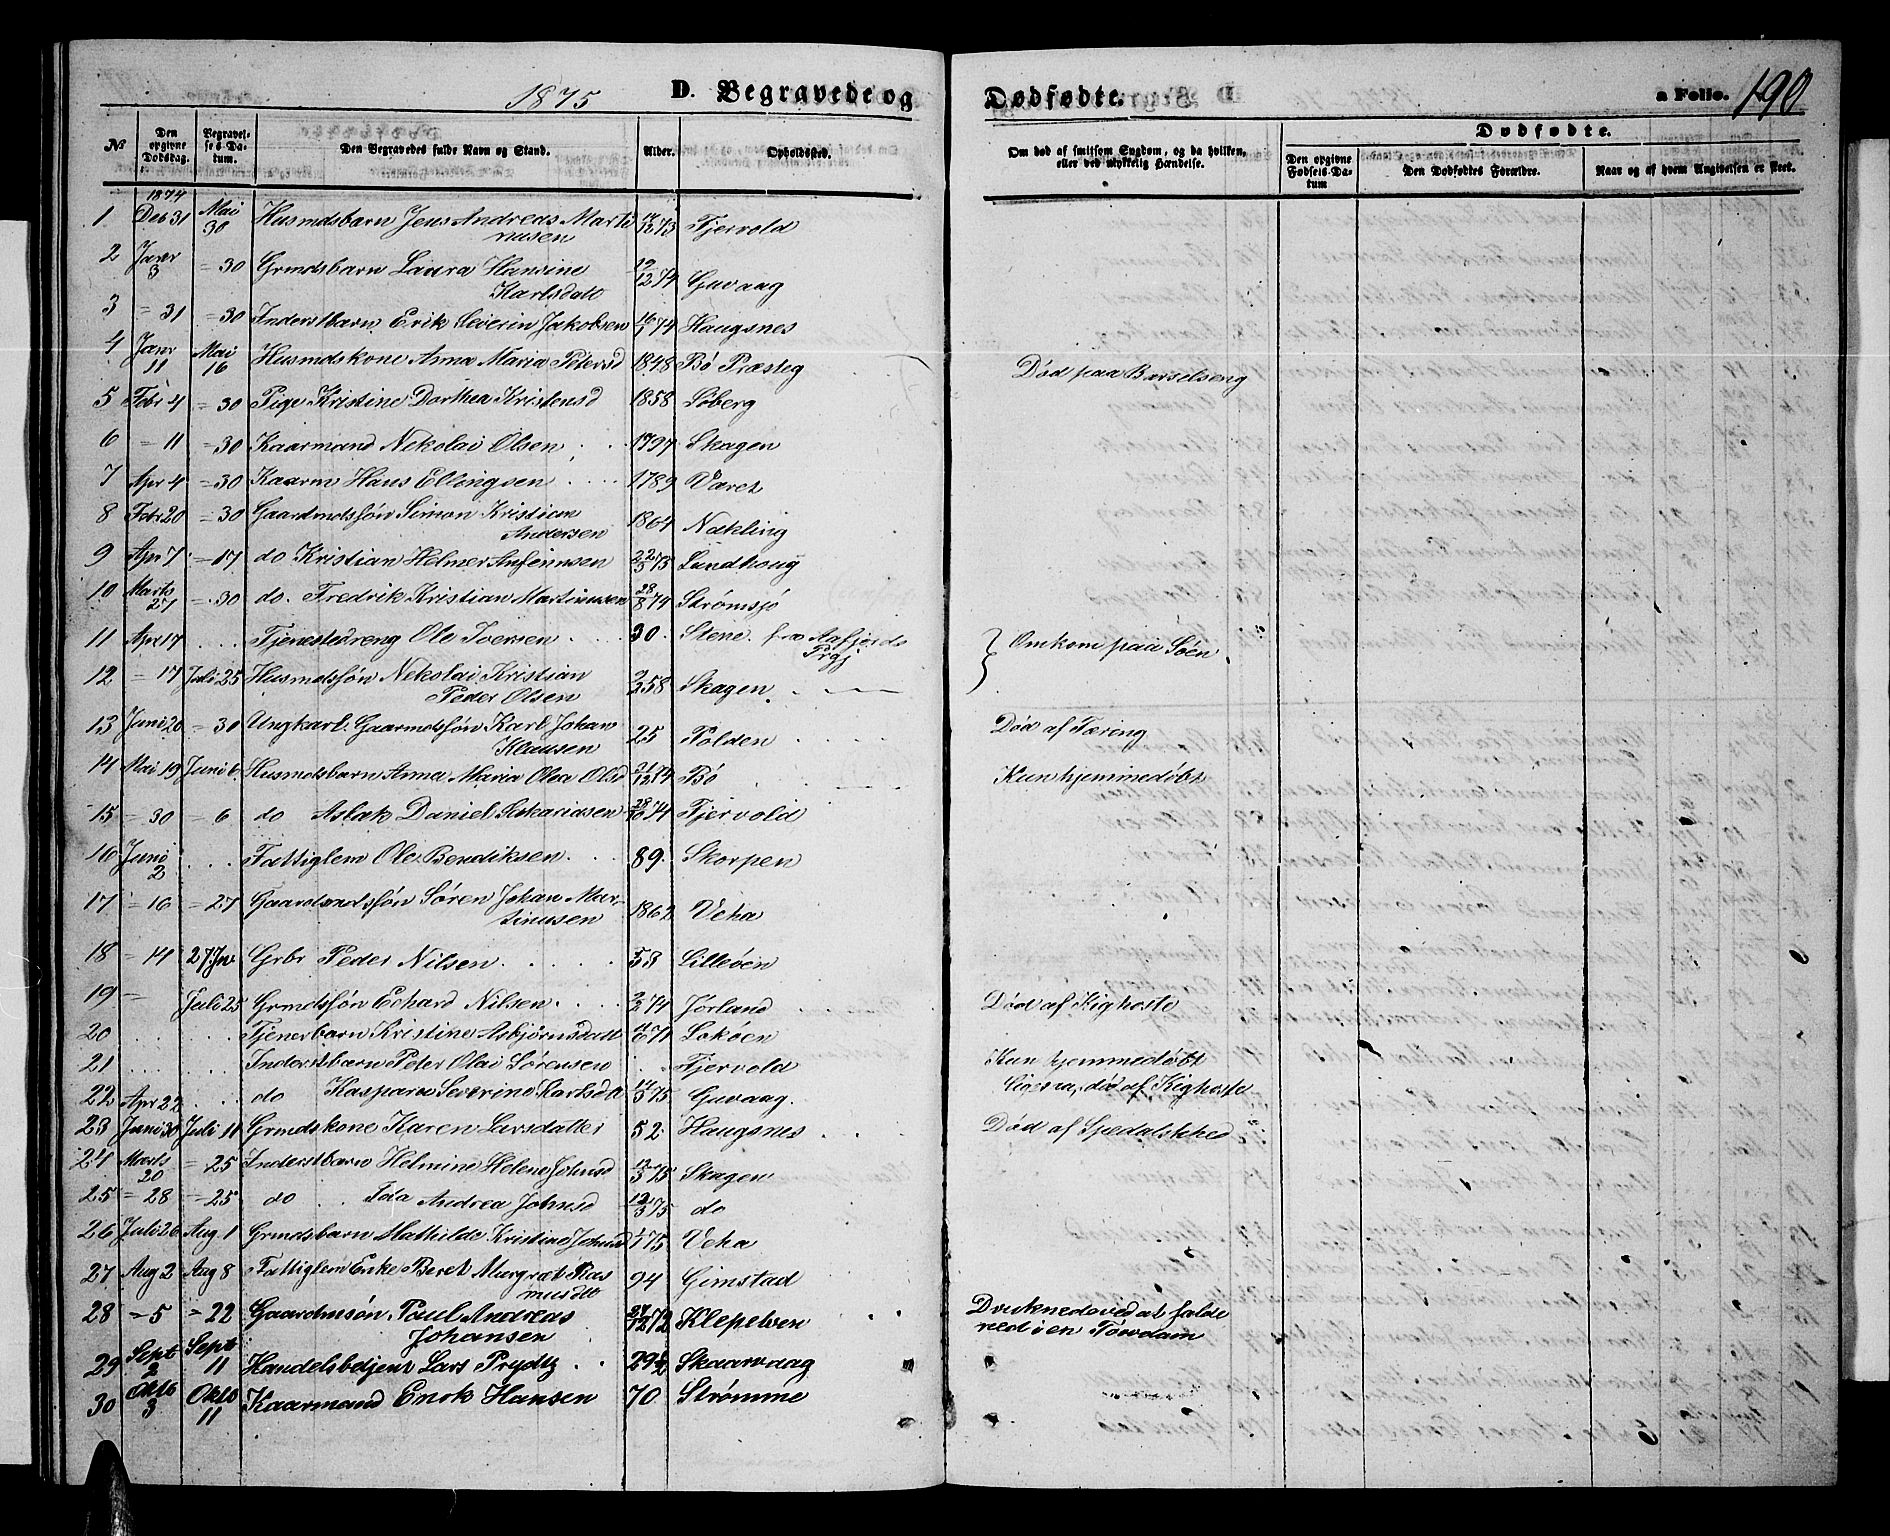 1875 D. Begravede og Dødfødte. a Folio. 190
No Den opgivne Dødsdag. Begravelses-Datum. Den Begravedes fulde Navn og Stand. Alder. Opholdssted. Om død af smitsom Sygdom, og da hvilken, eller ved ulykkelig Hændelse. Dødfødte. Den opgivne Fødsels-Datum Den Dødfødtes Forældre. Naar og af hvem Angivelsen er skeet.
1874
1 Deb 31 Mai 30 Husmdsbarn Jens Andreas Marti 14/12 73 Fjervold
nusen
2 Janr 3 = 30 Grmdsbarn Laura Hansine 12/12 74 Guvaag
Karlsdatt
3 = 31 = 30 Inderstbarn Erik Severin Jakobsen 16/1 74 Haugsnes
4 Janr 11 Mai 16 Husmdskone Anna Maria Petersd 1848 Bø Præsteg Død paa Barselseng
5 Febr 4 = 30 Pige Kristine Dorthea Kristensd 1858 Søberg
6 = 11 = 30 Kaarmand Nekolai Olsen 1797 Skagen
7 Apr 4 = 30 Kaarm Hans Ellingsen 1789 Været
8 Febr 20 = 30 Gaardmdssøn Simon Kristian 1864 Nækling
Andersen
9 Apr 7 = 17 do Kristian Helmer Anfinnsen 22/3 75 Lundhoug
10 Marts 27 = 30 do. Fredrik Kristian Martinusen 28/8 74 Strømsjø
11 Apr 17 . . . Tjenestedreng Ole Iversen 30. Stene. fra Aafjords Prgj Omkom paa Søen
12 = 17 Juli 25 Husmdssøn Nekolai Kristian 58 Skagen
Peder Olsen
13 Juni 20 = 30 Ungkarl. Gaarmdssøn Karl Johan 25 Polden Død af Tæring
Klausen
14 Mai 19 Juni 6 Husmdsbarn Anna Maria Olea Olsd 21/12 74 Bø Kun hjemmedøbt
15 = 30 = 6 do Aslak Daniel Sakariasen 28/10 74 Fjervold
16 Juni 2 . . . Fattiglem Ole Bendiksen 89. Skorpen
17 = 16 = 27 Gaardmdssøn Søren Johan Mar- 1862 Veha
tinusen
18 = 14 27 Ju Grbr Peder Nilsen 53 Lilleøen
19 = Juli 25 Grmdssøn Echard Nilsen 74 Jørland Død af Kighoste
20 . . . Tjenerbarn Kristine Asbjørnsdatt 71 Lokøen
21 . . . Inderstbarn Peter Olai Sørensen Fjervold Kun hjemmedøbt
22 Apr 22 . . do Kaspara Severine Karlsda 12/3 75 Guvaag. ligesaa, død af Kighoste
23 Juni 30 Juli 11 Grmdskone Karen Larsdatter 52. Haugsnes Død af Spedalskhed
24 Marts 20 = 25 Inderstbarn Helmine Helene Johnsd 12/3 75 Skagen
25 = 28 = 25 do Ida Andrea Johnsd 12/3 75 do
26 Juli 26 Aug 1 Grmdsbarn Mathilde Kristine Johnsd 75 Veha
27 Aug 2 Aug 8 Fattiglem Enke Beret Margræt Ras 94 Gimstad
musdtt
28 = 5 = 22 Gaardmsøn Paul Andreas 27/12 72 Klepelven Druknede ved at falde
Johansen ned i en Tøvdam
29 Sept 2 Sept 11 Handelsbetjent Lars Prydtz 29½ Skaarvaag
30 Oktb 3 Oktb 11 Kaarmand Enok Hansen 70 Strømme